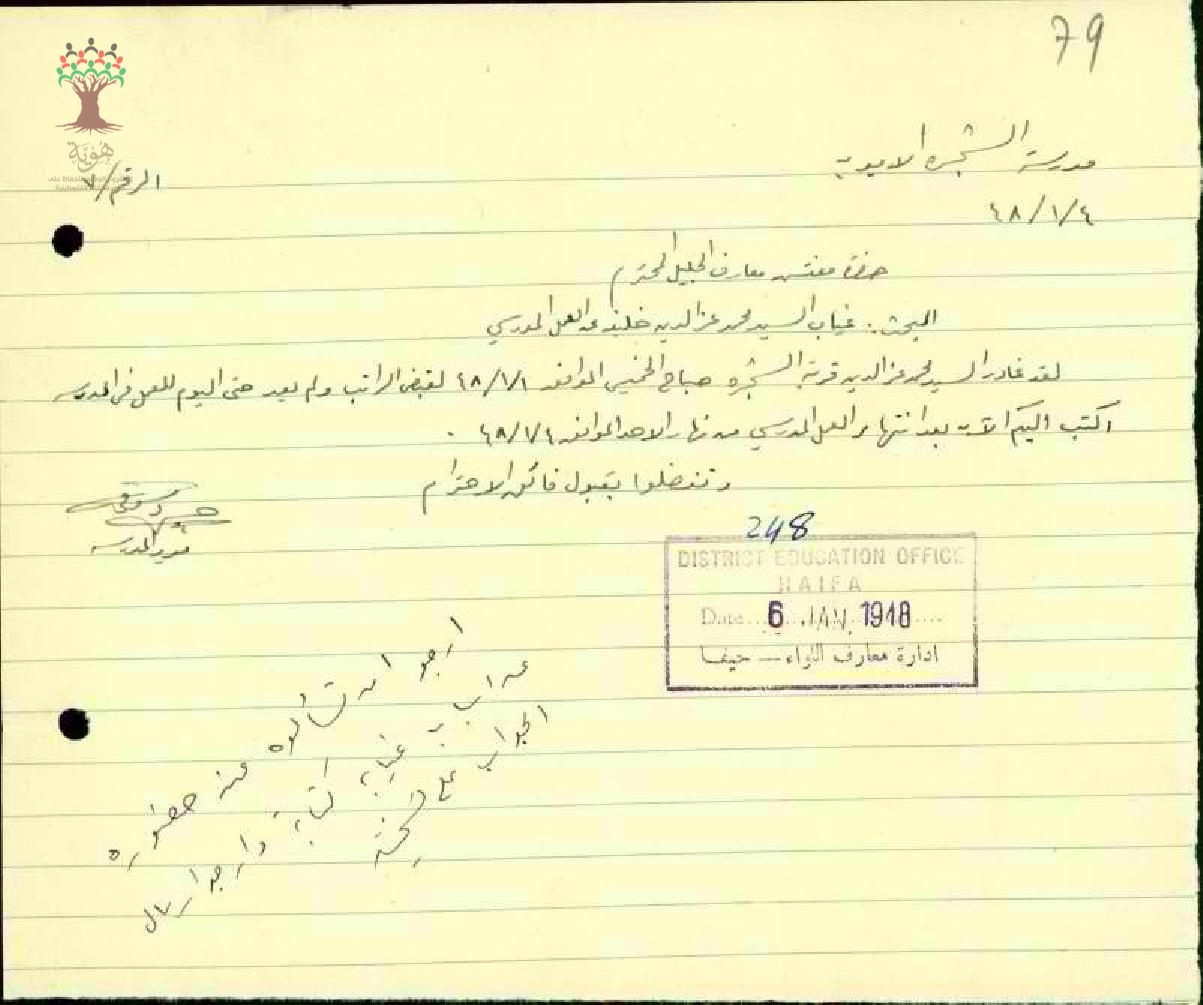 79
هوية
مدرسة الشجره الاميريه
الرقم/٧
٤٨/١/٤
حضرة مفتش معارف الجليل المحترم
المبحث: غياب السيد محمد عز الدين خليفه عن العمل المدرسي
لقد غادر السيد محمد عز الدين قرية الشجره صباح الخميس الموافق ٤٨/١/١ لقبض الراتب ولم يعد حتى اليوم للعمل في المدرسه
اكتب اليكم الآن بعد انتهاء العمل المدرسي من نهار الاحد الموافق ٤٨/١/٤ .
وتفضلوا بقبول فائق الاحترام
مدير المدرسه
248
DISTRICT EDUCATION OFFICE
HAIFA
Date 6 JAN 1948
ادارة معارف اللواء — حيفا
ارجو ان تسألوه عند حضوره
عن اسباب غيابه كتابة وارجو ارسال
الجواب على نسختين